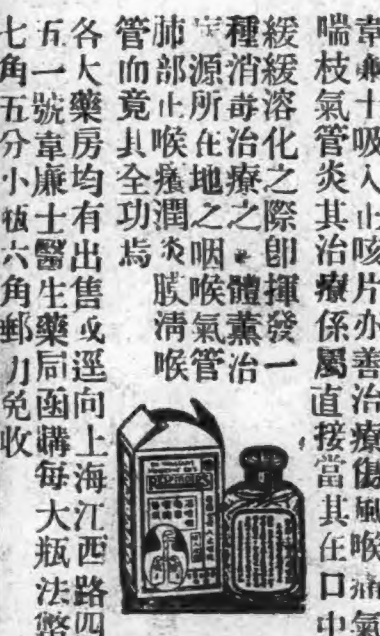 韋廉士吸入止咳片亦善治療傷風喉痛氣
喘枝氣管炎其治療係屬直接當其在口中
緩緩溶化之際卽揮發一
種消毒治療之體薰治
源所在地之咽喉氣管
肺部止喉癢潤炎膜淸喉
管而竟其全功焉
各大藥房均有出售或逕向上海江西路四
五一號韋廉士醫生藥局函購每大瓶法幣
七角五分小瓶六角郵力免收